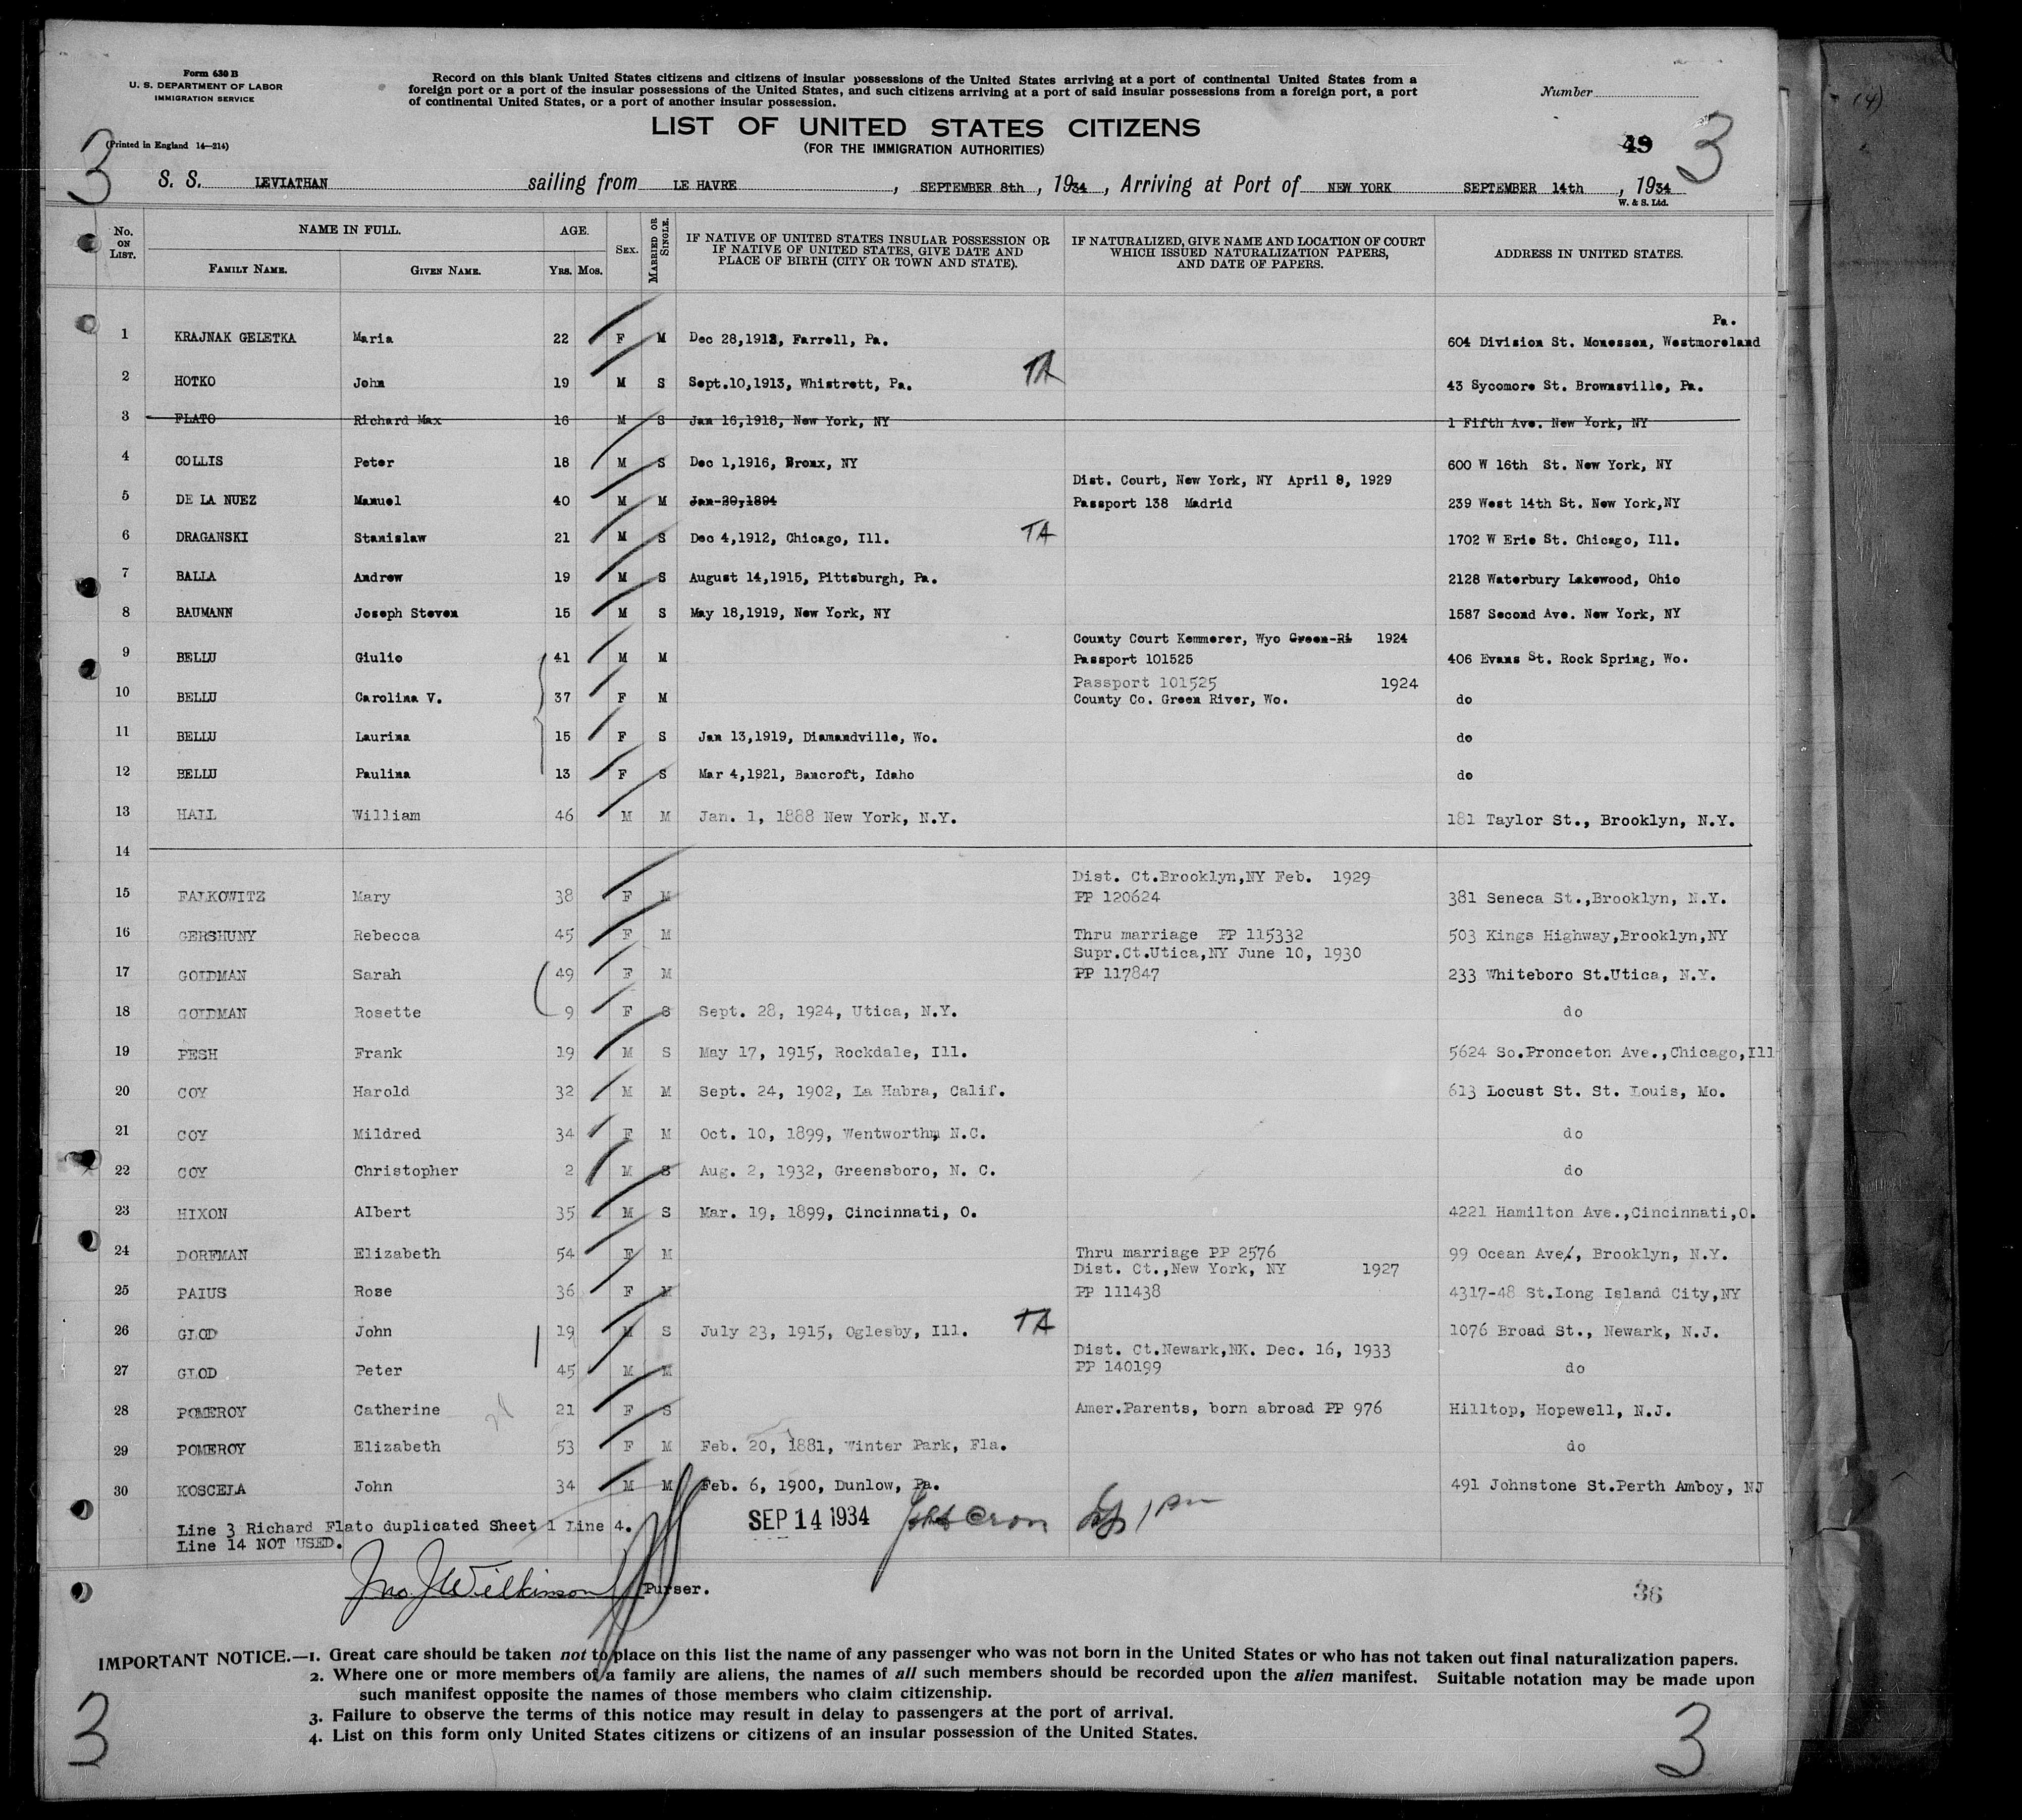 Form 630 B
U. S. DEPARTMENT OF LABOR
IMMIGRATION SERVICE
(Printed in England 14—214)
Record on this blank United States citizens and citizens of insular possessions of the United States arriving at a port of continental United States from a
foreign port or a port of the insular possessions of the United States, and such citizens arriving at a port of said insular possessions from a foreign port, a port
of continental United States, or a port of another insular possession.
Number
LIST OF UNITED STATES CITIZENS
(FOR THE IMMIGRATION AUTHORITIES)
49
3 3
S. S. LEVIATHAN sailing from LE HAVRE, SEPTEMBER 8th, 1934, Arriving at Port of NEW YORK SEPTEMBER 14th, 1934
W. & S. Ltd.
No. ON LIST. NAME IN FULL. FAMILY NAME. GIVEN NAME. AGE. YRS. MOS. SEX. MARRIED OR SINGLE. IF NATIVE OF UNITED STATES INSULAR POSSESSION OR IF NATIVE OF UNITED STATES, GIVE DATE AND PLACE OF BIRTH (CITY OR TOWN AND STATE). IF NATURALIZED, GIVE NAME AND LOCATION OF COURT WHICH ISSUED NATURALIZATION PAPERS, AND DATE OF PAPERS. ADDRESS IN UNITED STATES.
Pa.
1 KRAJNAK GELETKA Maria 22 F M Dec 28,1912, Farrell, Pa. 604 Division St. Monessen, Westmoreland
2 HOTKO John 19 M S Sept.10,1913, Whistrett, Pa. TA 43 Sycomore St. Brownsville, Pa.
3 FLATO Richard Max 16 M S Jan 16,1918, New York, NY 1 Fifth Ave. New York, NY
4 COLLIS Peter 18 M S Dec 1,1916, Bronx, NY 600 W 16th St. New York, NY
Dist. Court, New York, NY April 8, 1929
5 DE LA NUEZ Manuel 40 M M Jan-20,1894 Passport 138 Madrid 239 West 14th St. New York,NY
6 DRAGANSKI Stanislaw 21 M S Dec 4,1912, Chicago, Ill. TA 1702 W Erie St. Chicago, Ill.
7 BALLA Andrew 19 M S August 14,1915, Pittsburgh, Pa. 2128 Waterbury Lakewood, Ohio
8 BAUMANN Joseph Steven 15 M S May 18,1919, New York, NY 1587 Second Ave. New York, NY
County Court Kemmerer, Wyo Green-Ri 1924
9 BELLU Giulio 41 M M Passport 101525 406 Evans St. Rock Spring, Wo.
Passport 101525 1924
10 BELLU Carolina V. 37 F M County Co. Green River, Wo. do
11 BELLU Laurina 15 F S Jan 13,1919, Diamandville, Wo. do
12 BELLU Paulina 13 F S Mar 4,1921, Bancroft, Idaho do
13 HALL William 46 M M Jan. 1, 1888 New York, N.Y. 181 Taylor St., Brooklyn, N.Y.
14
Dist. Ct.Brooklyn,NY Feb. 1929
15 FALKOWITZ Mary 38 F M PP 120624 381 Seneca St.,Brooklyn, N.Y.
16 GERSHUNY Rebecca 45 F M Thru marriage PP 115332 503 Kings Highway,Brooklyn,NY
Supr.Ct.Utica,NY June 10, 1930
17 GOLDMAN Sarah 49 F M PP 117847 233 Whiteboro St.Utica, N.Y.
18 GOLDMAN Rosette 9 F S Sept. 28, 1924, Utica, N.Y. do
19 PESH Frank 19 M S May 17, 1915, Rockdale, Ill. 5624 So.Pronceton Ave.,Chicago,Ill
20 COY Harold 32 M M Sept. 24, 1902, La Habra, Calif. 613 Locust St. St. Louis, Mo.
21 COY Mildred 34 F M Oct. 10, 1899, Wentworth, N.C. do
22 COY Christopher 2 M S Aug. 2, 1932, Greensboro, N. C. do
23 HIXON Albert 35 M S Mar. 19, 1899, Cincinnati, O. 4221 Hamilton Ave.,Cincinnati,O.
24 DORFMAN Elizabeth 54 F M Thru marriage PP 2576 99 Ocean Ave., Brooklyn, N.Y.
Dist. Ct.,New York, NY 1927
25 PAIUS Rose 36 F M PP 111438 4317-48 St.Long Island City,NY
26 GLOD John 19 M S July 23, 1915, Oglesby, Ill. TA 1076 Broad St., Newark, N.J.
Dist. Ct.Newark,NK. Dec. 16, 1933
27 GLOD Peter 45 M M PP 140199 do
28 POMEROY Catherine 21 F S Amer.Parents, born abroad PP 976 Hilltop, Hopewell, N.J.
29 POMEROY Elizabeth 53 F M Feb. 20, 1881, Winter Park, Fla. do
30 KOSCELA John 34 M M Feb. 6, 1900, Dunlow, Pa. 491 Johnstone St.Perth Amboy, NJ
Line 3 Richard Flato duplicated Sheet 1 Line 4.
Line 14 NOT USED.
SEP 14 1934
Jno. J Wilkinson Purser.
36
IMPORTANT NOTICE.—1. Great care should be taken not to place on this list the name of any passenger who was not born in the United States or who has not taken out final naturalization papers.
2. Where one or more members of a family are aliens, the names of all such members should be recorded upon the alien manifest. Suitable notation may be made upon
such manifest opposite the names of those members who claim citizenship.
3. Failure to observe the terms of this notice may result in delay to passengers at the port of arrival.
4. List on this form only United States citizens or citizens of an insular possession of the United States.
3 3
(4)